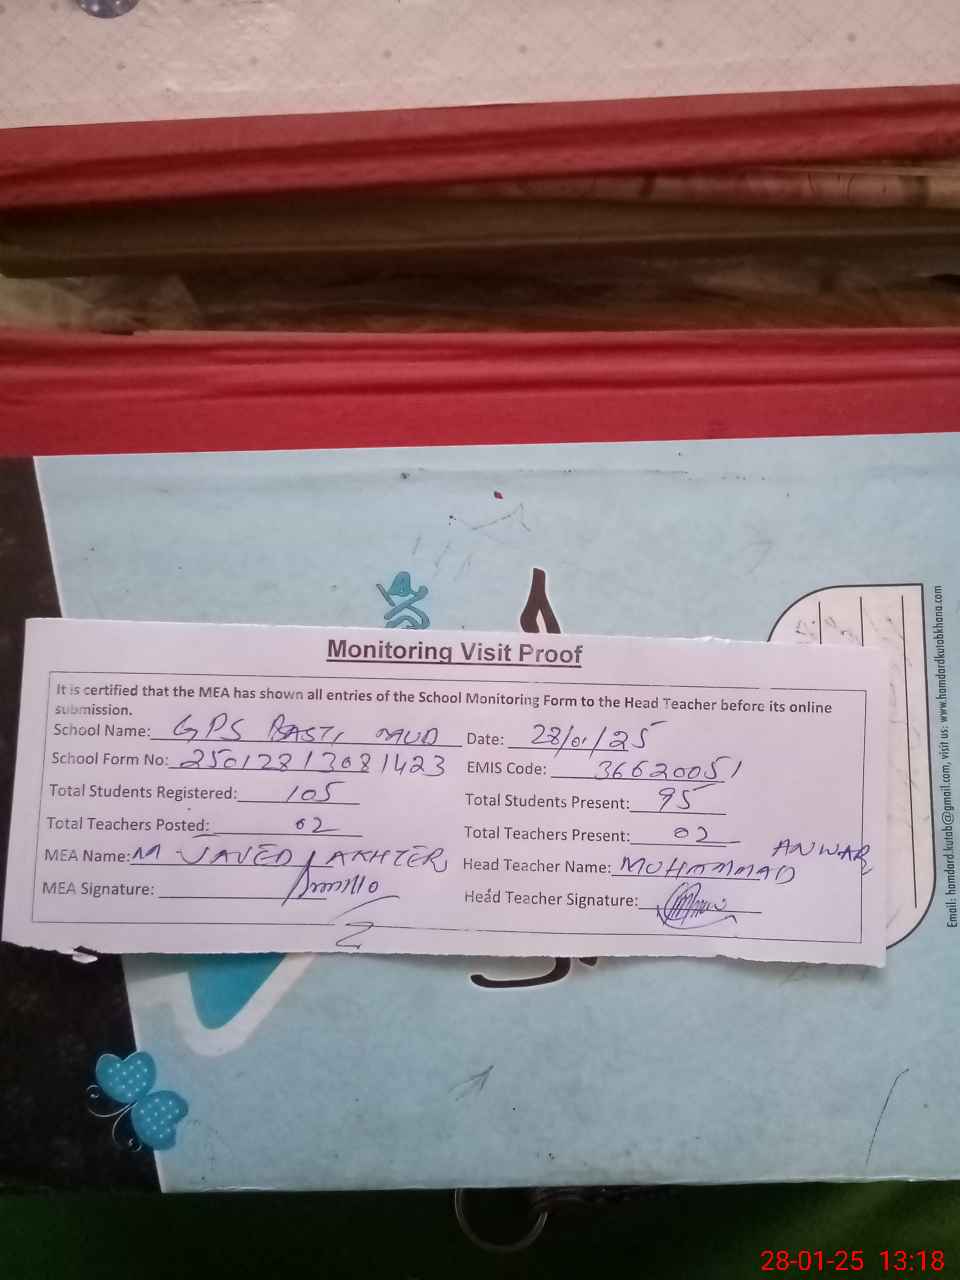 Monitoring Visit Proof
It is certified that the MEA has shown all entries of the School Monitoring Form to the Head Teacher before its online
submission.
School Name: GPS BASTI Date: 28/01/25
School Form No: 25012813081423 EMIS Code: 36620051
Total Students Registered: 105 Total Students Present: 95
Total Teachers Posted: 02 Total Teachers Present: 02
MEA Name: M JAVED AKHTER Head Teacher Name: MUHAMMAD ANWAR
MEA Signature: Head Teacher Signature:
Email: hamdard.kutab@gmail.com, visit us: www.hamdardkutabkhana.com
28-01-25 13:18